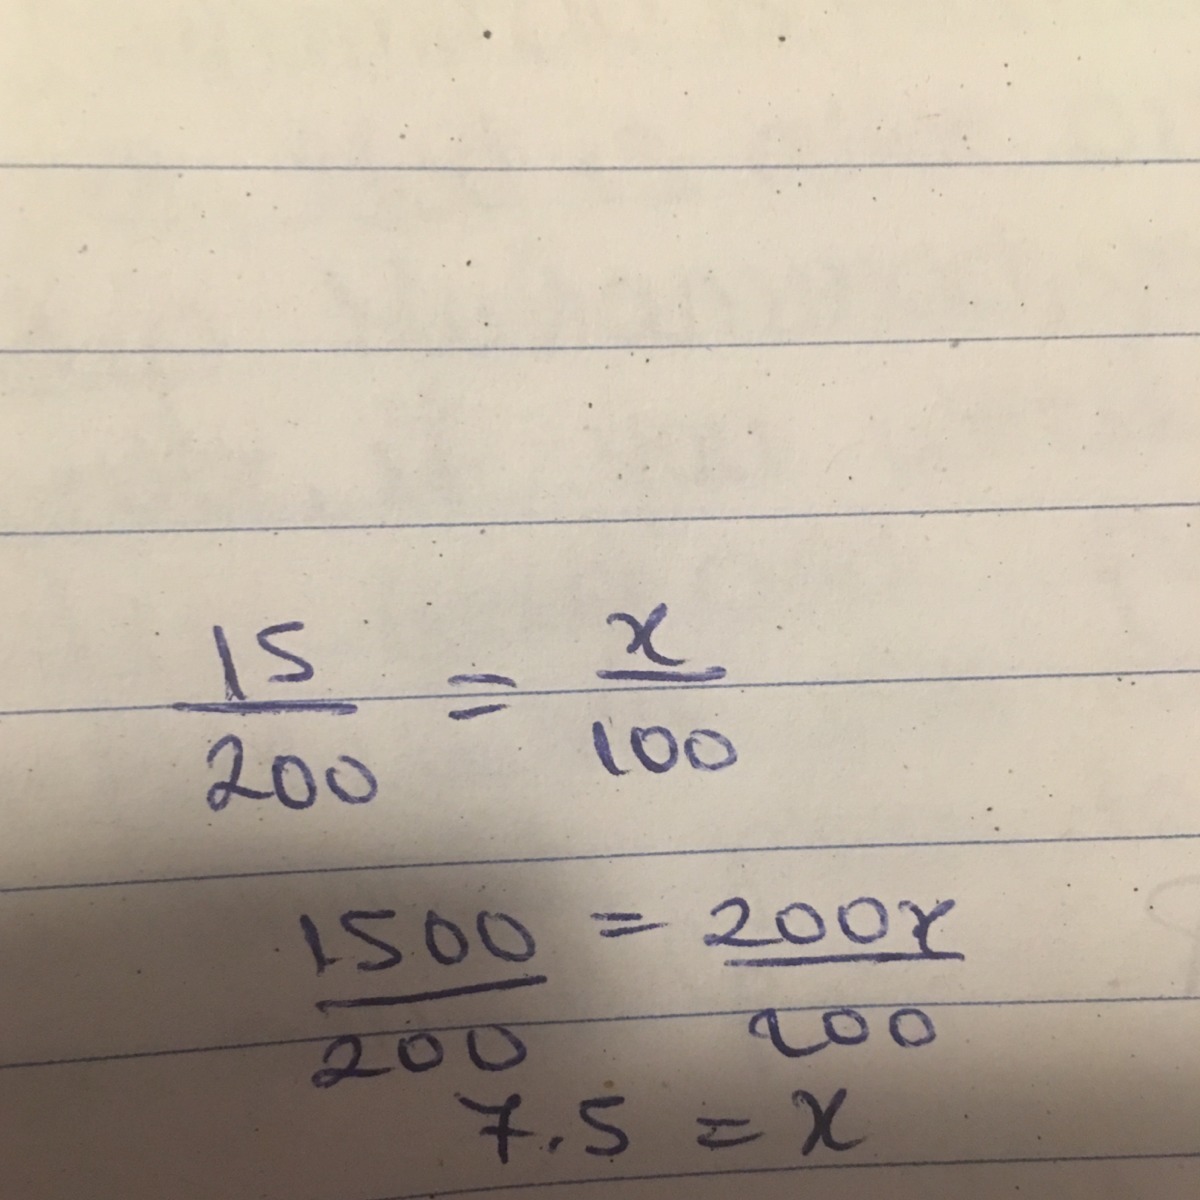 15/200 = x/100
1500/200 = 200x/200
7.5 = x